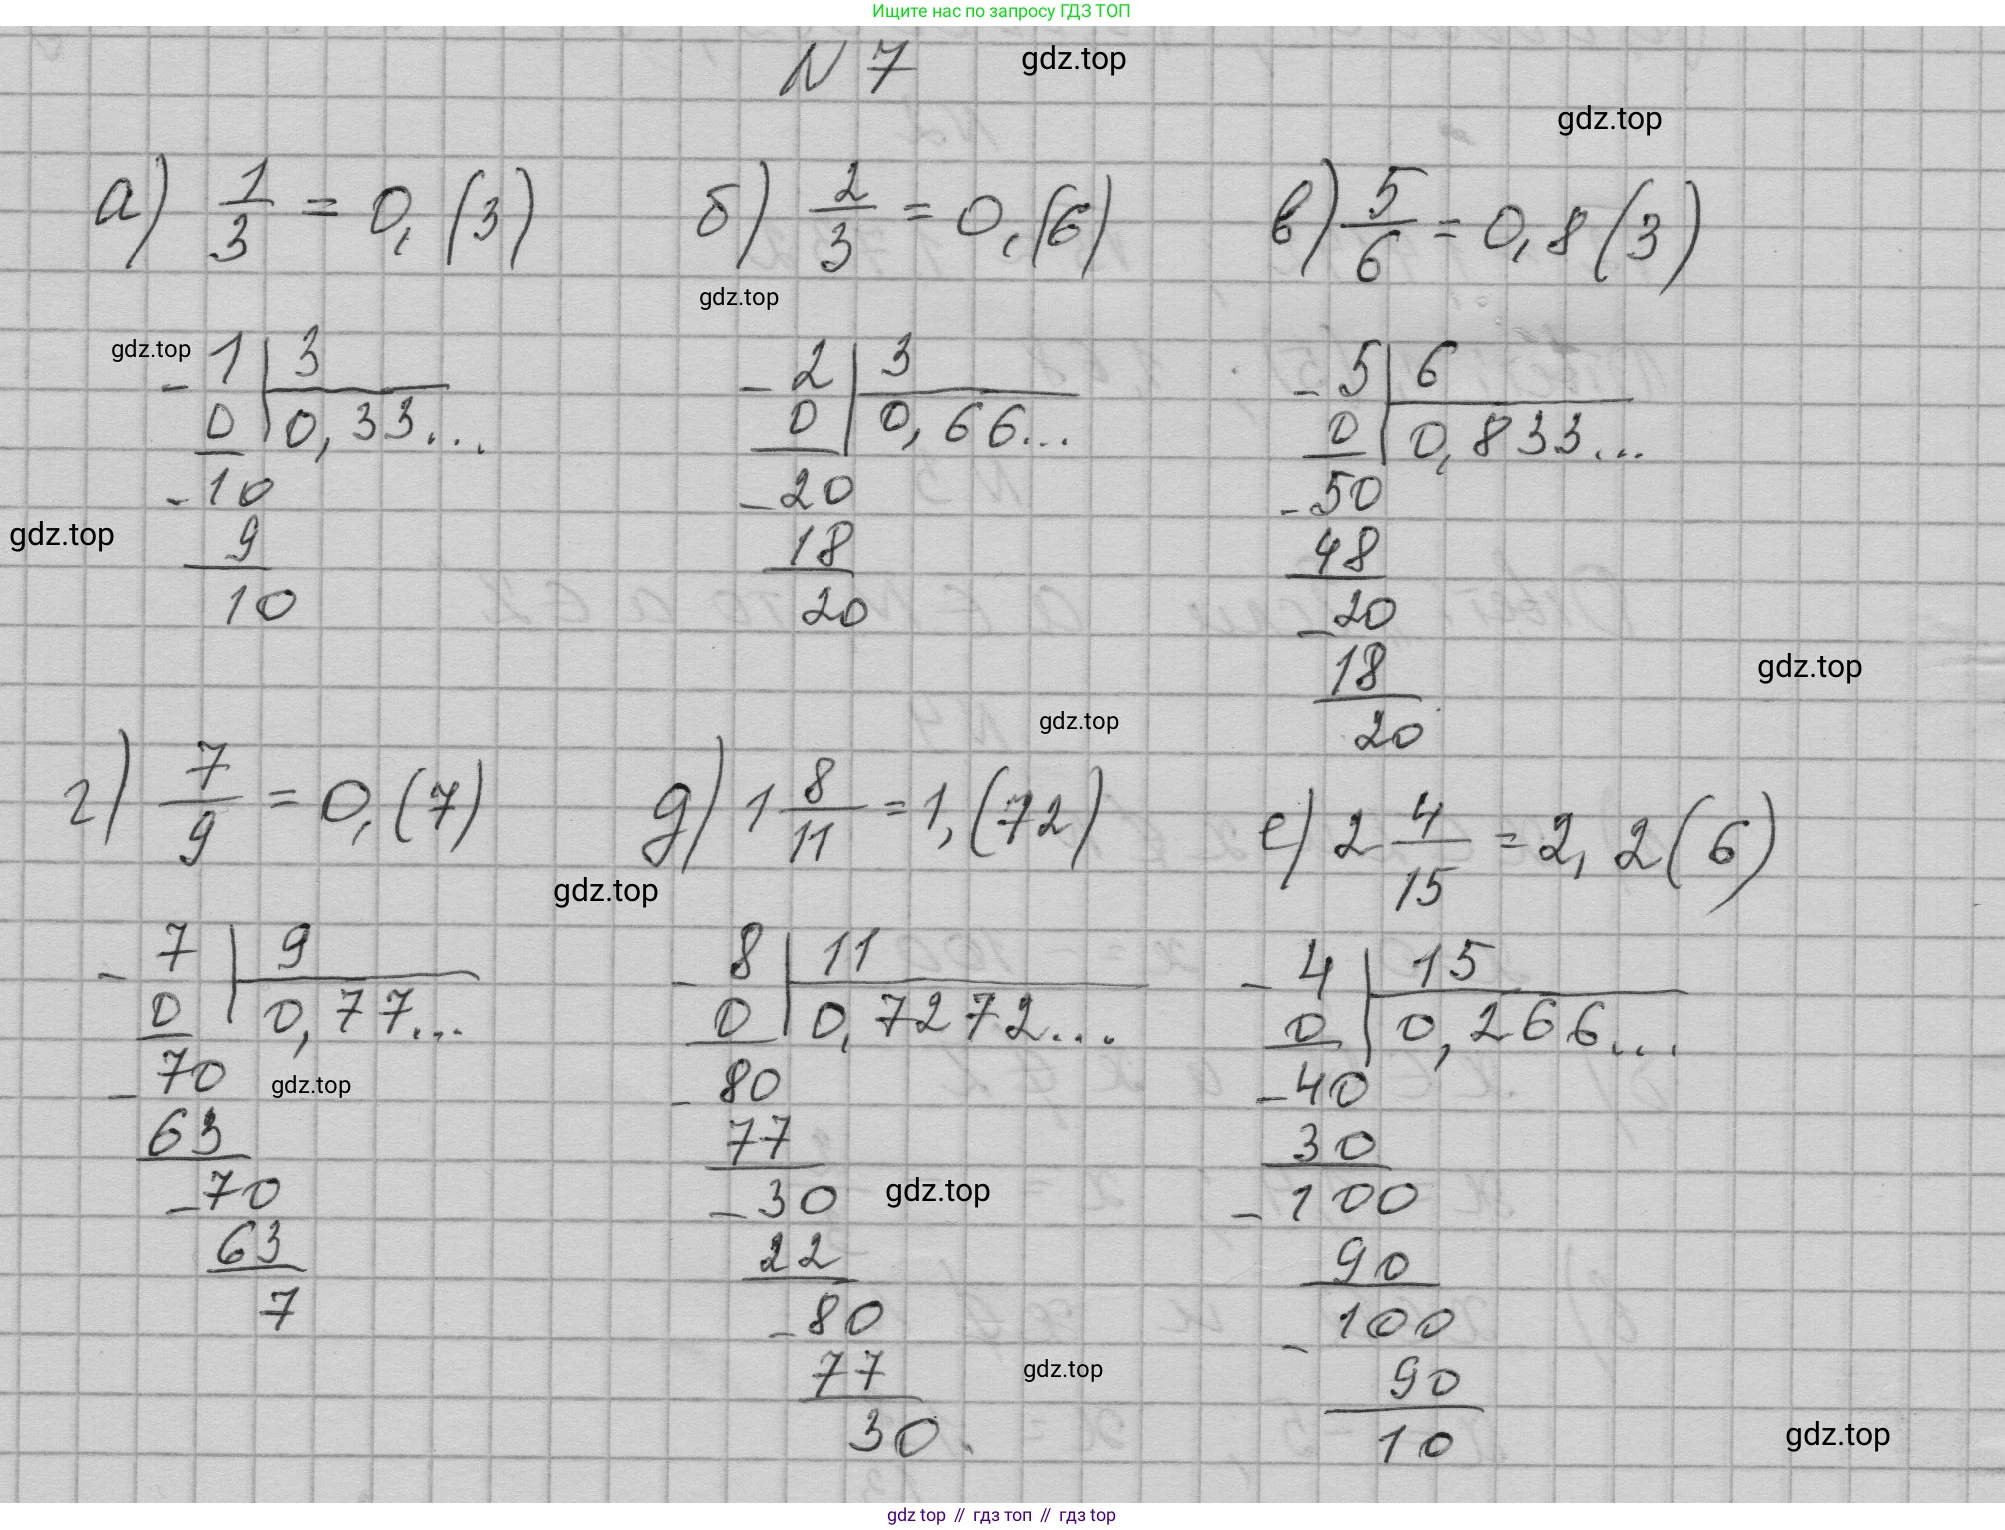 Ищите нас по запросу ГДЗ ТОП
N 7
gdz.top
gdz.top
а) 1/3 = 0,(3)
б) 2/3 = 0,(6)
в) 5/6 = 0,8(3)
gdz.top
gdz.top
- 1 | 3
0 | 0,33...
- 10
9
10
- 2 | 3
0 | 0,66...
- 20
18
20
- 5 | 6
0 | 0,833...
- 50
48
- 20
18
20
gdz.top
gdz.top
gdz.top
г) 7/9 = 0,(7)
д) 1 8/11 = 1,(72)
е) 2 4/15 = 2,2(6)
gdz.top
- 7 | 9
0 | 0,77...
- 70
63
- 70
63
7
gdz.top
- 8 | 11
0 | 0,7272...
- 80
77
- 30
22
- 80
77
30.
gdz.top
gdz.top
- 4 | 15
0 | 0,266...
- 40
30
- 100
90
- 100
90
10
gdz.top
gdz top // гдз топ // gdz top